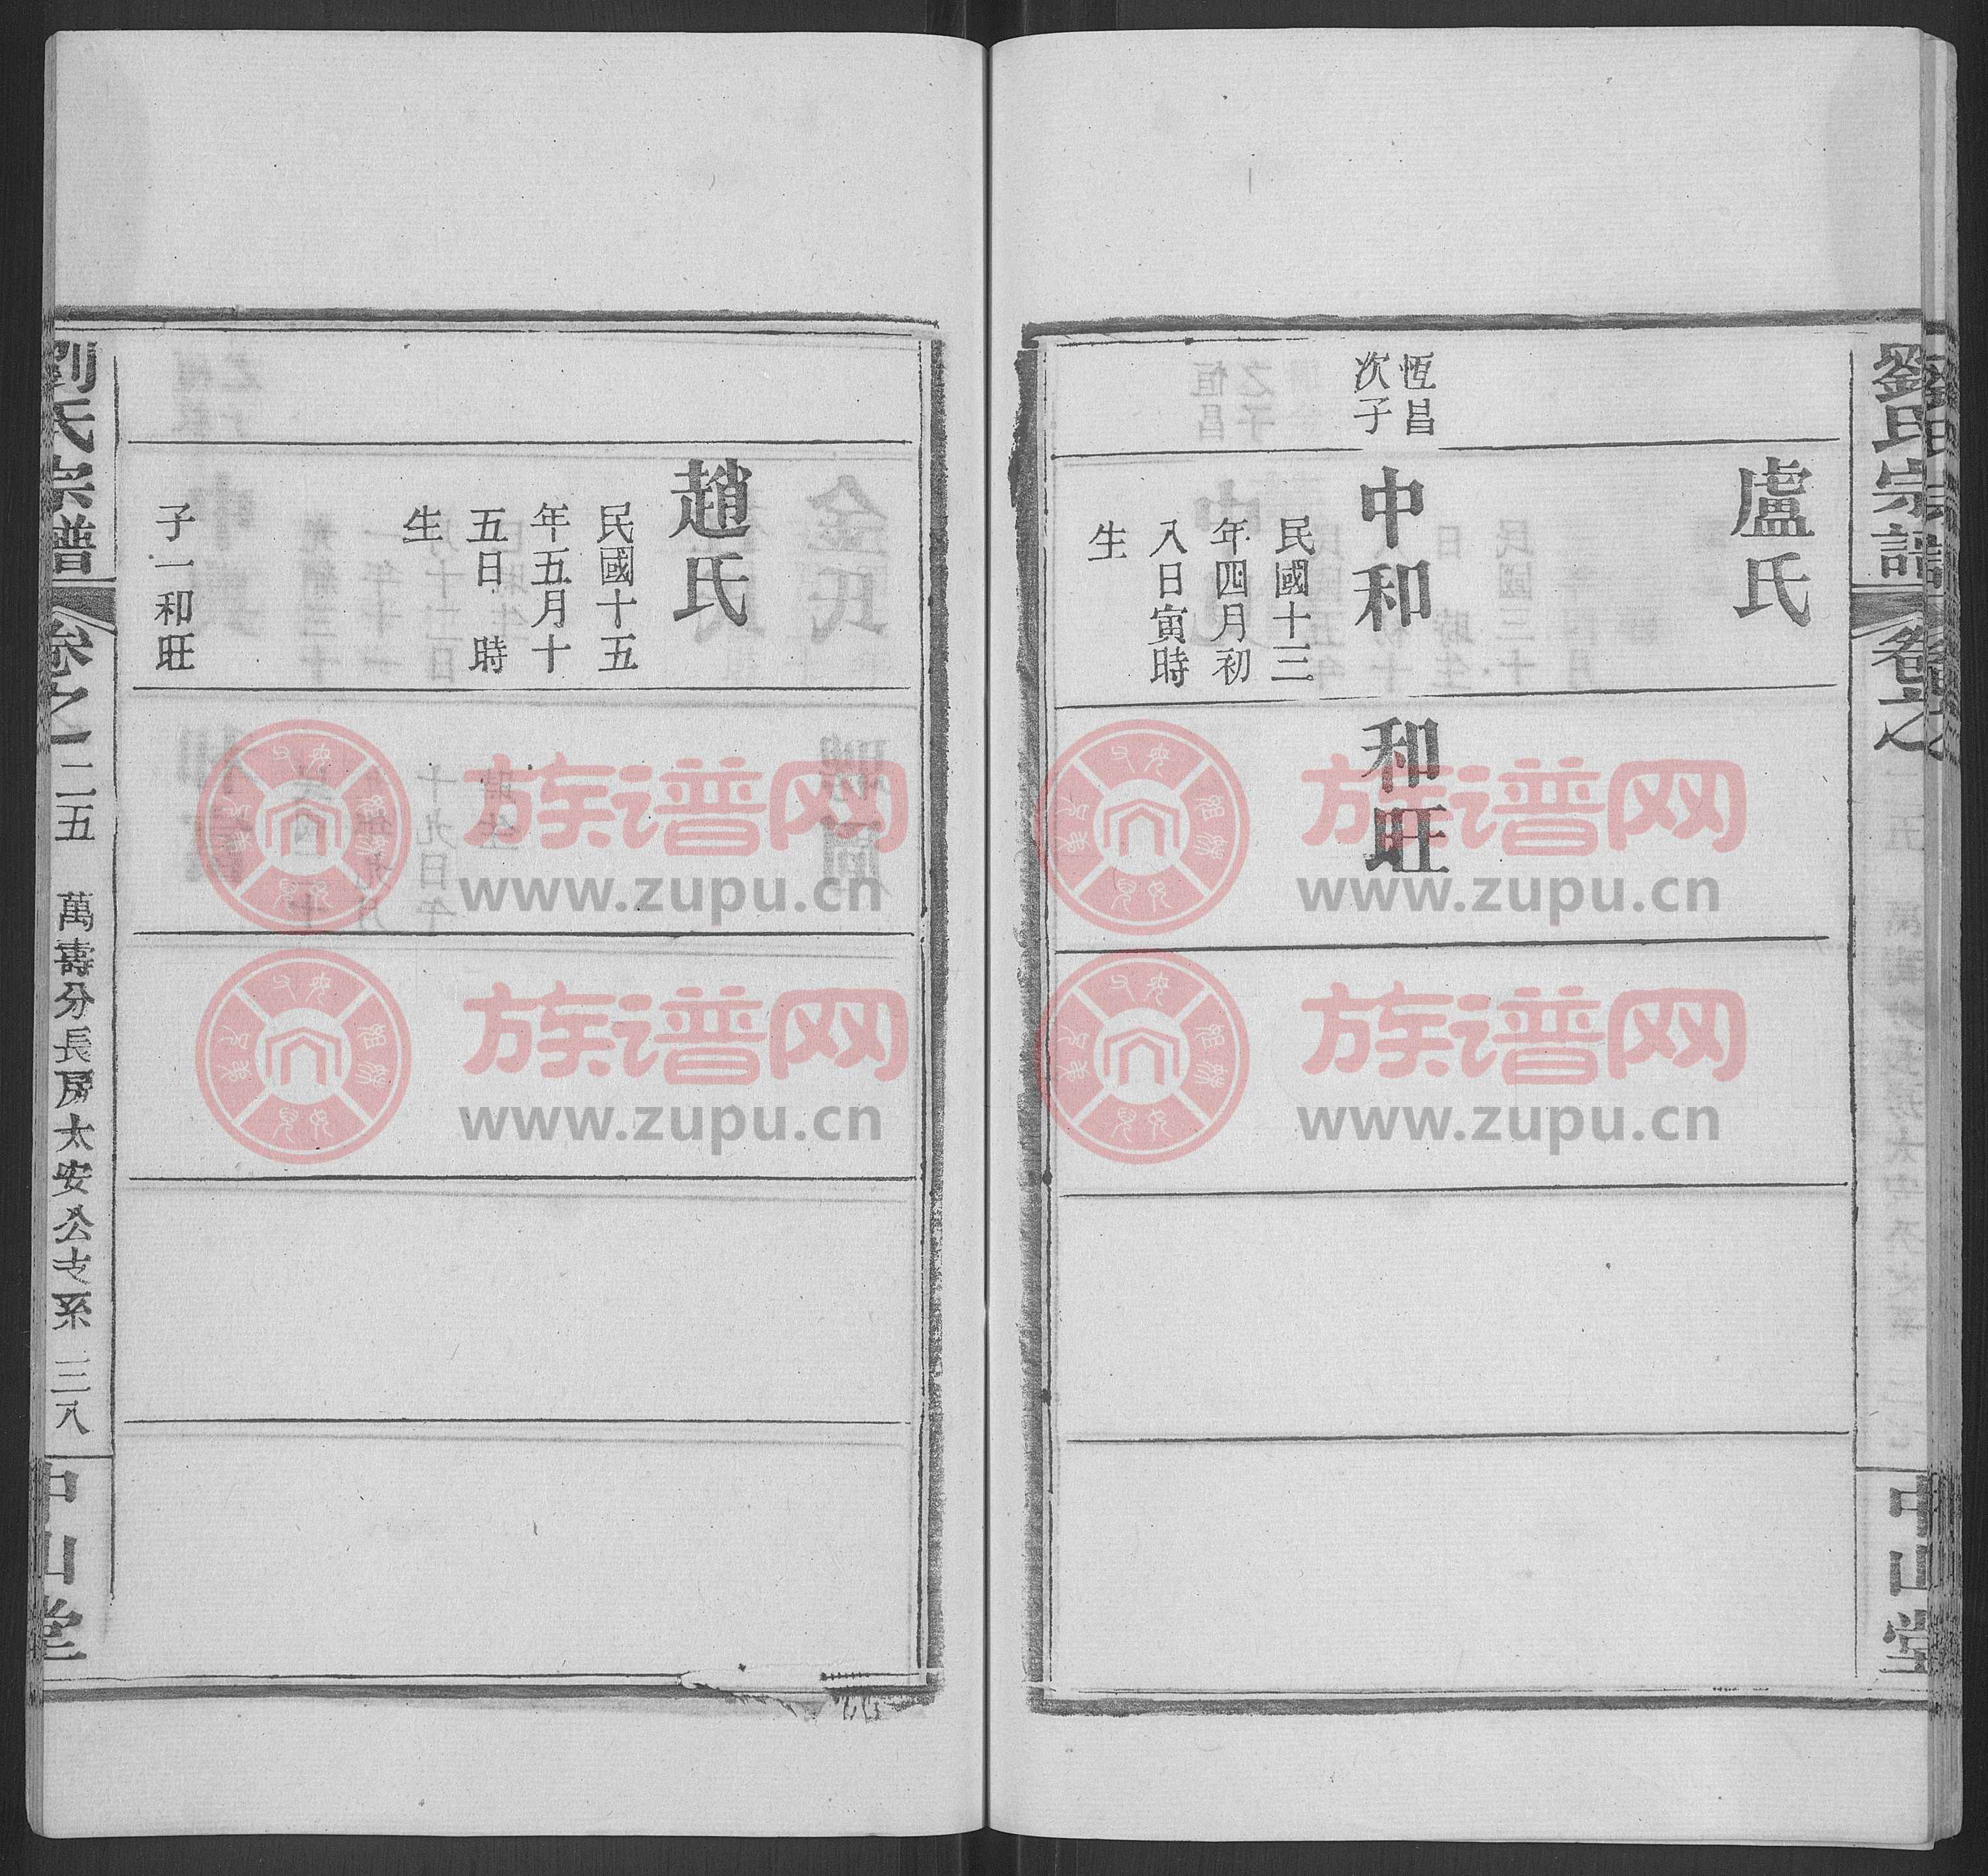 劉氏宗譜
卷之
中山堂
盧氏
恆昌
次子
中和
民國十三
年四月初
入日寅時
生
和旺
趙氏
民國十五
年五月十
五日 時
生
子一和旺
劉氏宗譜
卷之一二五
萬壽分長房太安公支系
三八
中山堂
族谱网
www.zupu.cn
族谱网
www.zupu.cn
族谱网
www.zupu.cn
族谱网
www.zupu.cn